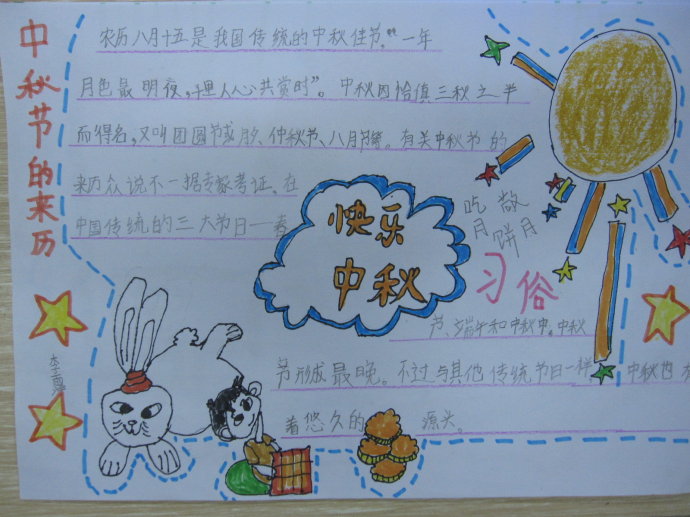 中秋节的来历
农历八月十五是我国传统的中秋佳节。“一年
月色最明夜,千里人心共赏时”。中秋因恰值三秋之半
而得名,又叫团圆节或月夕、仲秋节、八月节等。有关中秋节的
来历众说不一据专家考证、在
中国传统的三大节日一春
快乐
中秋
吃月饼
敬月
习俗
节、端午和中秋中。中秋
节形成最晚。不过与其他传统节日一样 中秋也有
着悠久的 源头。